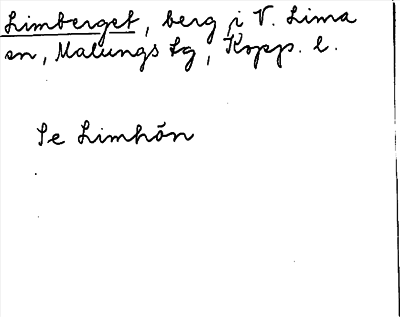 Limberget, berg i V. Lima
sn, Malungs tg, Kopp. l.
Se Limhön